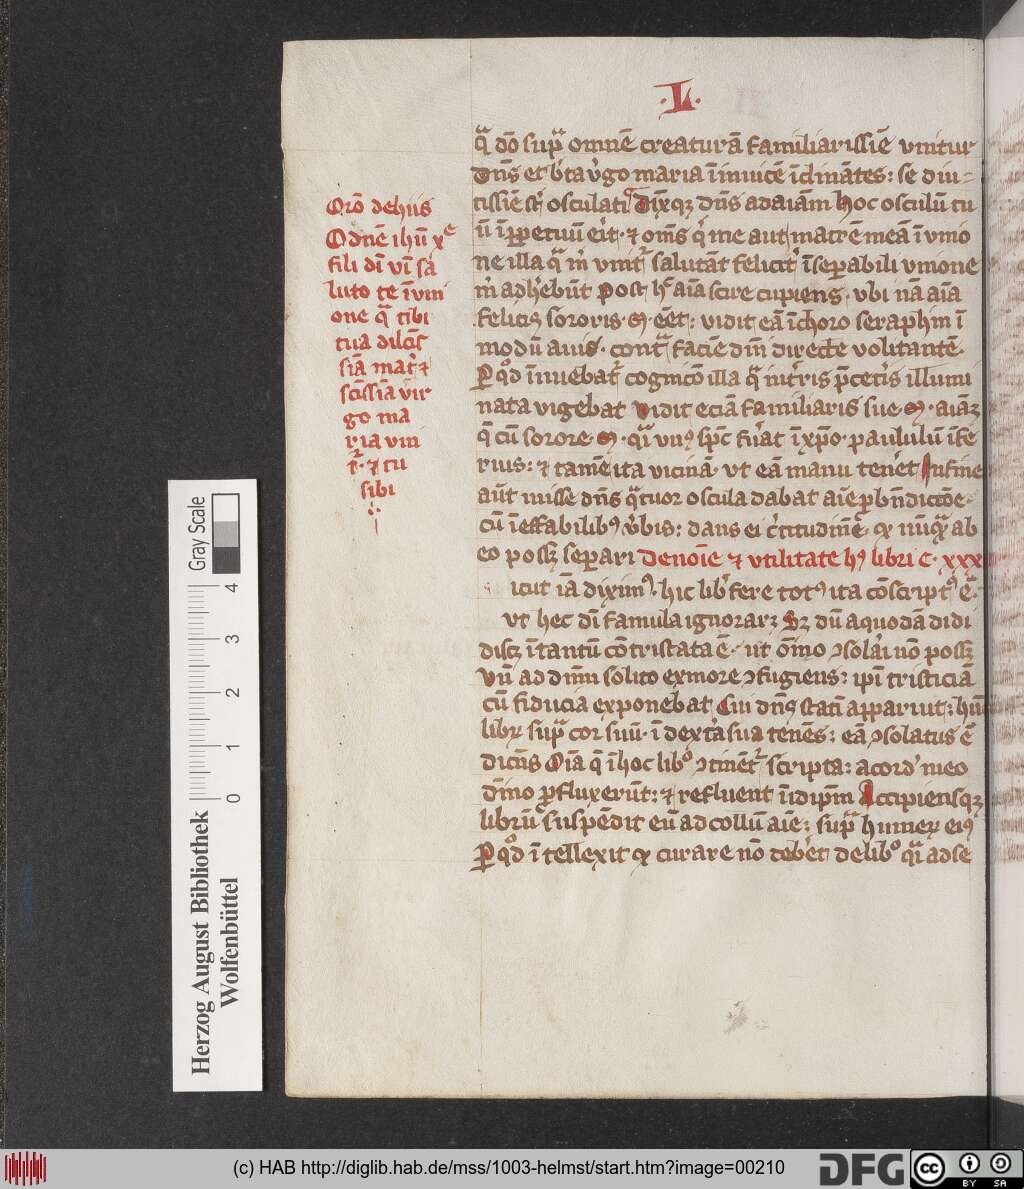 .L.
qͣ dō supͣ omnē creaturā familiarissīe vnitur
dn̄s et bt̄a v̓go maria ī inuicē īclinātes: se diu-
tissīe sr̄ osculati dixqꝫ dn̄s ad aīam hoc osculū tu
ū īꝑpetuū er̄it· ⁊ om̄s qͥ me aut matrē meā ī vnio
ne illa qͣ m̄ vnitͬ salutāt felicitͬ īseꝑabili vnione
m̄ adh̓ebūt Post hͨ aīa scire cupiens· vbi nā aīa
felicis sororis· M· eēt: vidit eā ī choro seraphin ī
modū auis· contͣ faciē dn̄i directe volitantē·
ꝑ qͦd īnuebatͬ cognicō illa qͣ int̓ris p̄cet̓is illumi
nata vigebat Vidit eciā familiaris sue M· aīaꝫ
q̄ cū sorore M· qͣi vnꝰ spc̄ fu̓at ī xp̄o· paululū īfe
rius: ⁊ tamē ita vicinā· vt eā manu tener̓et In fine
aūt misse dn̄s qͣtuor oscula dabat aīe ꝑ bn̄dictōe·
cū īeffabilibꝰ v̓bis: dans ei c̓titudinē· qꝫ nūqͣ ab
eo possꝫ seꝑari De noīe ⁊ vtilitate hꝰ libri C· xxx
icut iā diximꝰ· hic lib̓ fere totꝰ ita cōscriptꝰ ē·
vt hec dī famula ignorarꝫ Sꝫ dū a quodā didi
discꝫ ī tantū cōtristata ē· ut ōīno ꝯsolari nō possꝫ
Vn̄ ad dn̄m solito ex more ꝯfugiens: ip̄i tristiciā
cū fiducia exponebat Cui dn̄s statī apparuit: hūc
librū supͣ cor suū· ī dext̓a sua tenēs: eā ꝯsolatus ē
dicn̄s Oīa q̄ ī hoc libͦ ꝯtinētͬ scripta: a cord̓ meo
dīuīo ꝓfluxerūt: ⁊ refluent ī idip̄m Accipiensqꝫ
librū suspēdit eū ad collū aīe: supͣ humeꝝ eiꝰ
ꝑ qͦd ītellexit qꝫ curare nō deb̓et de libͦ qͣi ad se
Orō de hiis
O dn̄e ihū xᵉ
fili dī vī sa
luto te ī vni
one qͣ tibi
tua dilc̄s
siā mat̓ ⁊
scīssīa vir
go ma
ria vni
tͬ· ⁊ tu
sibi
Gray Scale
4
3
2
1
0
Herzog August Bibliothek
Wolfenbüttel
(c) HAB http://diglib.hab.de/mss/1003-helmst/start.htm?image=00210
DFG
cc
BY SA